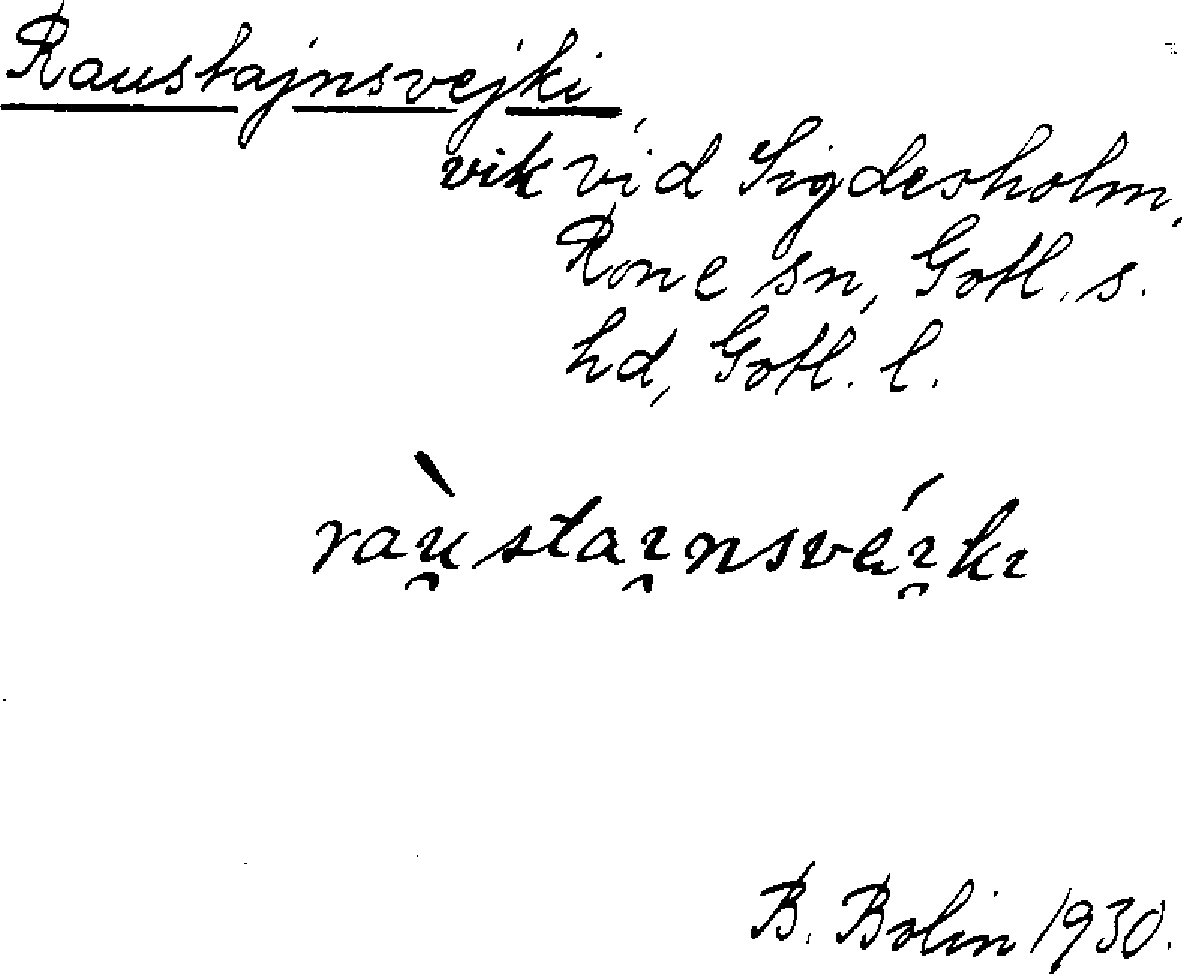 Raustajnsvejki,
vik vid Sigdesholm,
Rone sn, Gotl. s.
hd, Gotl. l.
ràu̯staɪ̯nsvéɪ̯kɪ
B. Bolin 1930.